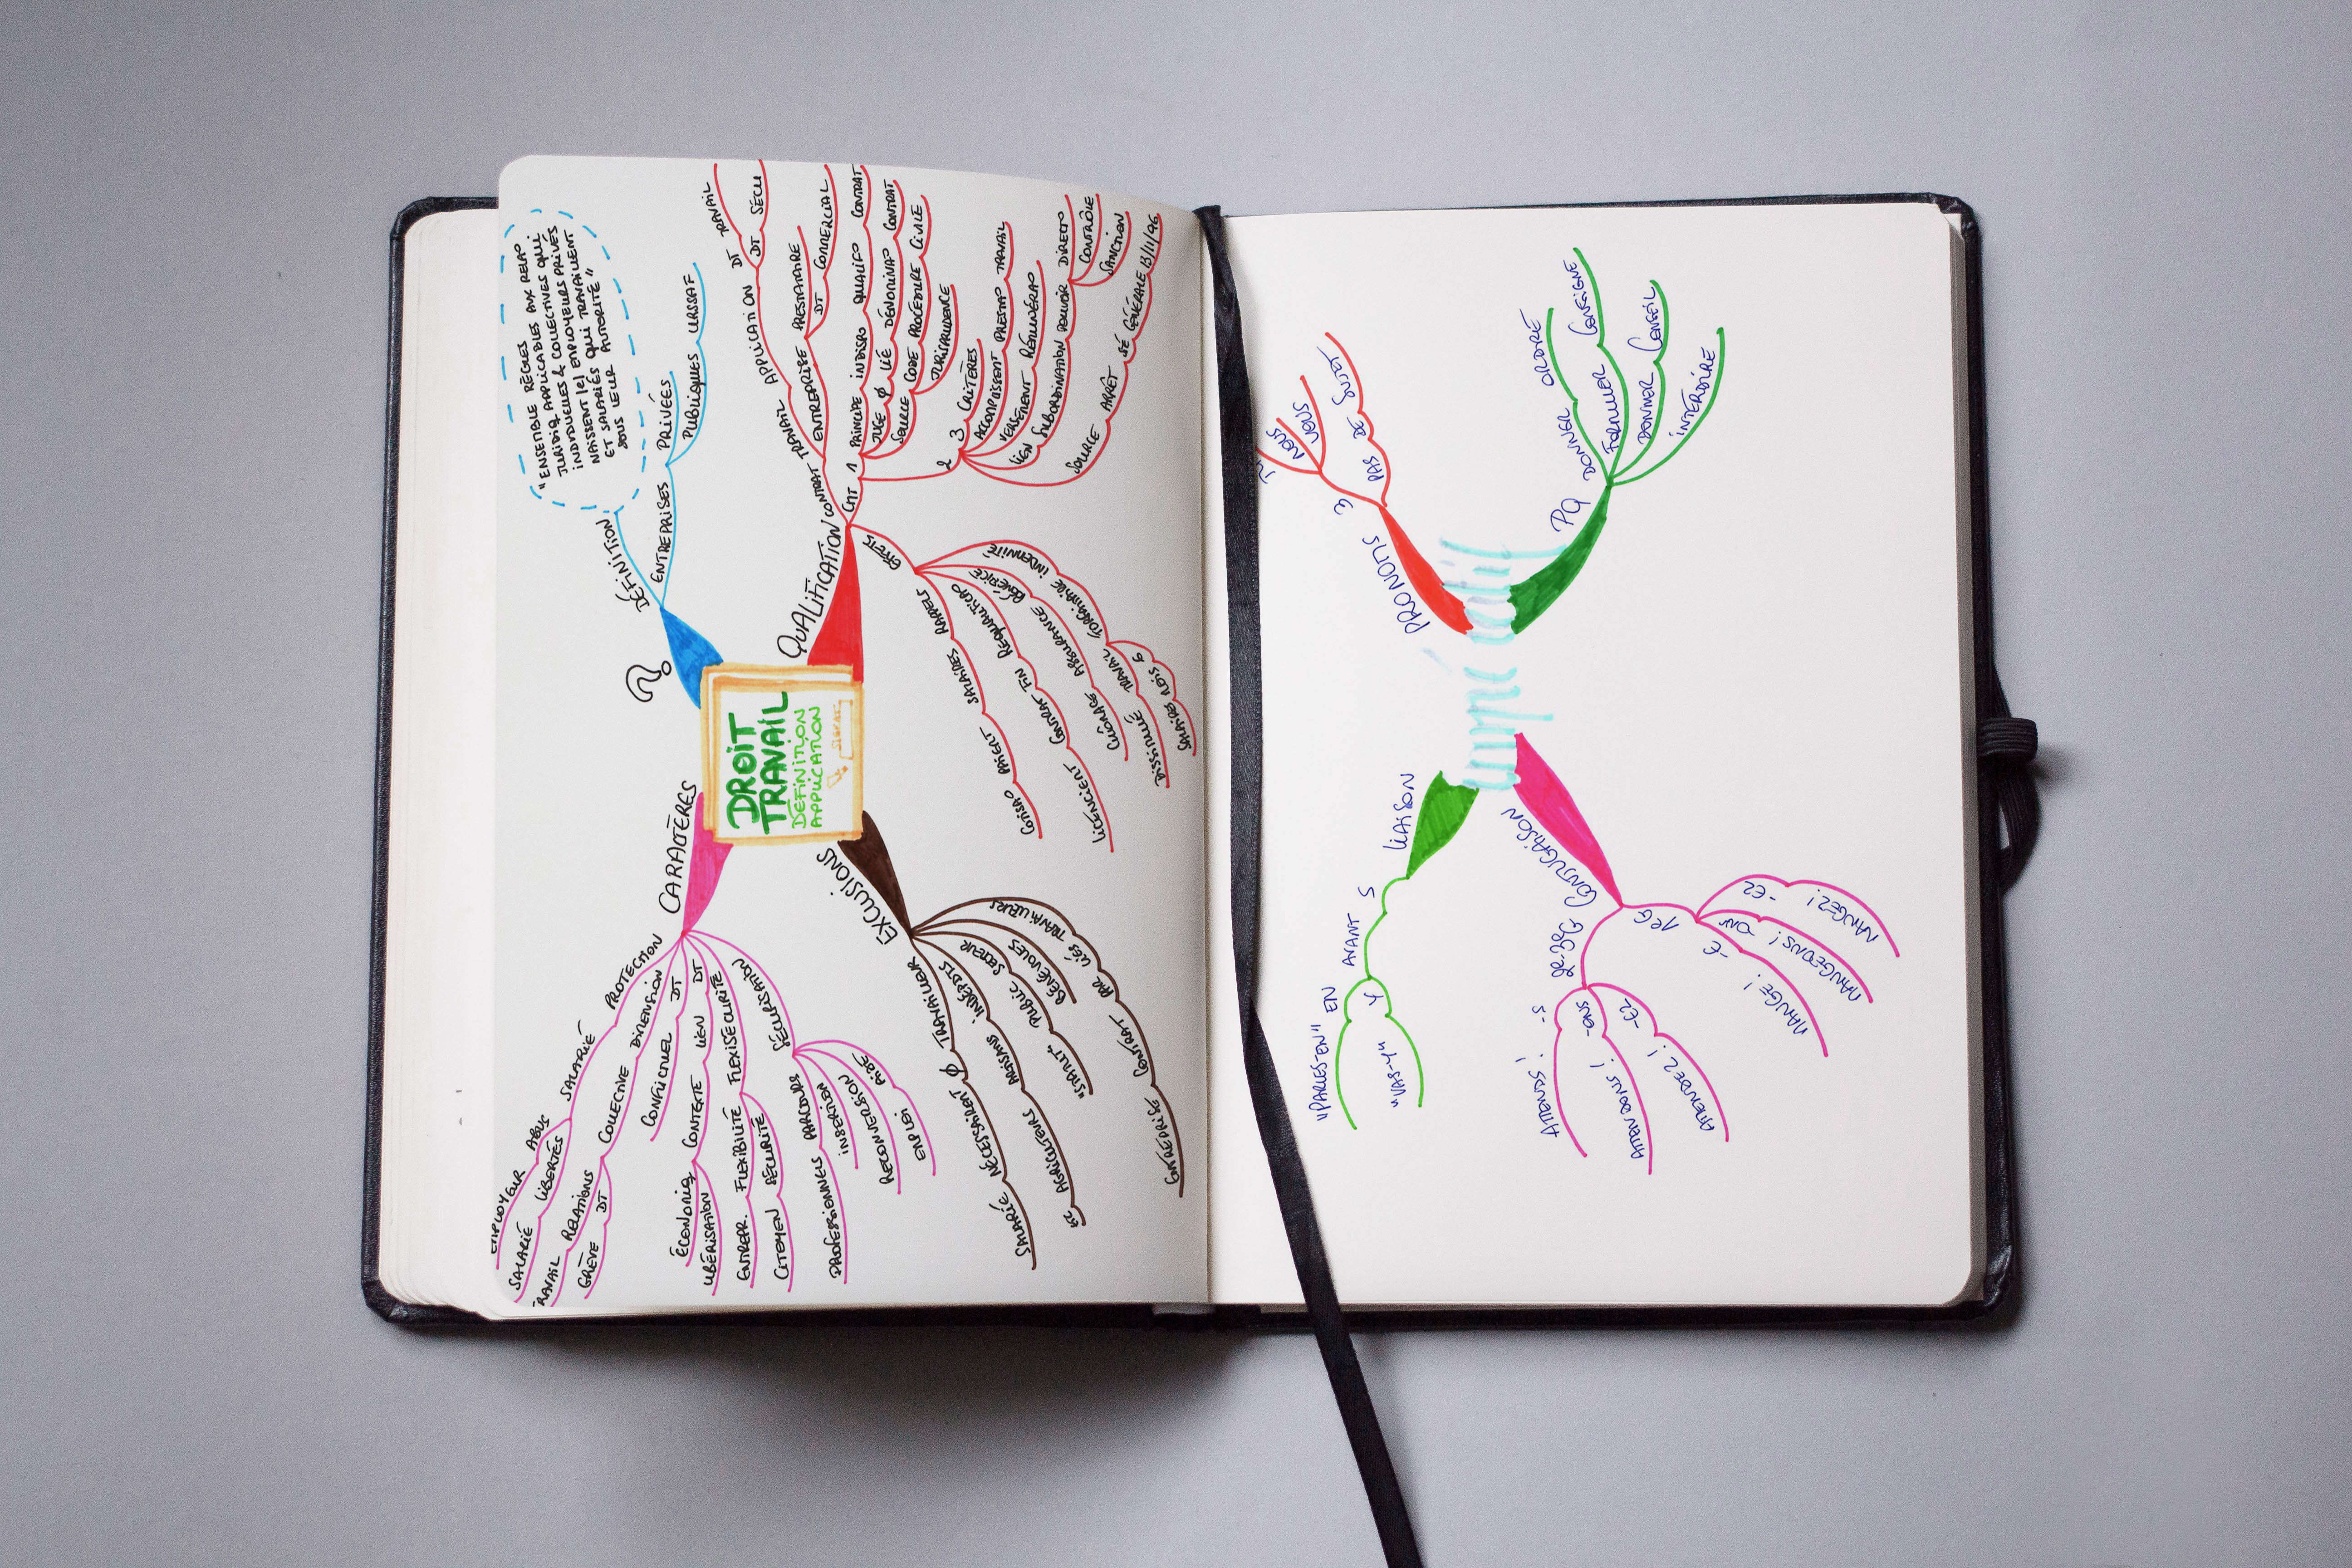 DROIT
TRAVAIL
DÉFINITION
APPLICATION
?
DÉFINITION
"ENSEMBLE RÈGLES AUX RELAO
JURIDIQ APPLICABLES QUI
INDIVIDUELLES & COLLECTIVES
NAISSENT [e] EMPLOYEURS PRIVÉS
ET SALARIÉS QUI TRAVAILLENT
SOUS LEUR AUTORITÉ"
ENTREPRISES
PRIVÉES
PUBLIQUES URSSAF
QUALIFICATION
CONTRAT TRAVAIL APPLICATION
DT TRAVAIL
DT SÉCU
ENTREPRISE PRESTATAIRE
DT COMMERCIAL
CMT
1
PRINCIPE INDISPO QUALIFO CONTRAT
JUGE Ø LIÉ DÉNOMINAO CONTRAT
SOURCE CODE PROCÉDURE CIVILE
JURISPRUDENCE
2
3 CRITÈRES
ACCOMPLISSENT PRESTAO TRAVAIL
VERSEMENT RÉMUNÉRAO
LIEN SUBORDINATION POUVOIR
DIRECTO
CONTRÔLE
SANCTION
SOURCE ARRÊT SÉ GÉNÉRALE 13/11/96
EFFETS
RAPPELS SALAIRES
CONTRAT FIN
REQUALIFICAO
LICENCIENT
BÉNÉFICE ASSURANCE CHÔMAGE
INDEMNITÉ FORFAITAIRE
TRAVAIL DISSIMULÉ
6 MOIS SALAIRES
EXCLUSIONS
TRAVAILLEUR Ø NÉCESSAIRENT SALARIÉ
INDÉPDTS
ARTISANS
AGRICULTEURS
ETC
SECTEUR PUBLIC "STATUT"
BÉNÉVOLES
TRAVAILLEURS LIÉS PAR CONTRAT
CARACTÈRES
PROTECTION SALARIÉ
ABUS EMPLOYEUR
LIBERTÉS SALARIÉ
DIMENSION COLLECTIVE
RELATIONS
DT GRÈVE
DT CONFLICTUEL
DT LIEN CONTEXTE
ÉCONOMIQ
UBÉRISATION
FLEXISÉCURITÉ
FLEXIBILITÉ ENTREPR.
SÉCURITÉ CITOYEN
SÉCURISATION
PARCOURS PROFESSIONNELS
INSERTION
RECONVERSION
AIDE EMPLOI
PRONOMS
3
TU
NOUS
VOUS
PAS DE SUJET
PQ
DONNER ORDRE
FORMULER CONSIGNE
DONNER CONSEIL
INTERDIRE
LIAISON
S AVANT
EN
"PARLES-EN"
Y
"VAS-Y"
CONJUGAISON
1eG
-E
MANGE!
-ONS
MANGEONS!
-EZ
MANGEZ!
2e-3eG
-S
ATTENDS!
-ONS
ATTENDONS!
-EZ
ATTENDEZ!